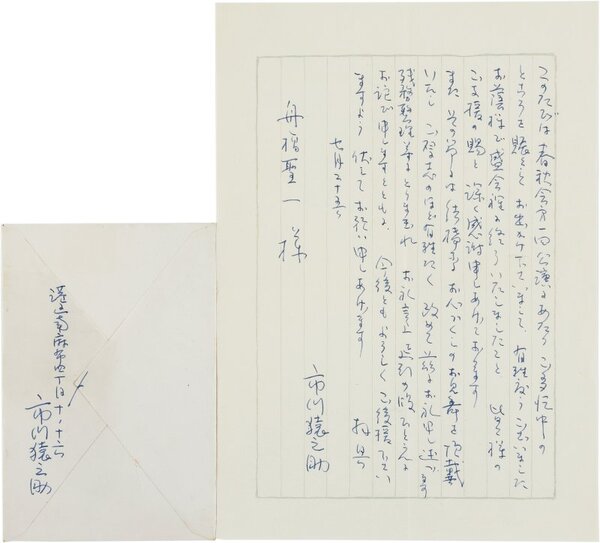 このたびは春秋会第一回公演にあたり ご多忙中の
ところを賑々しくお出かけ下さいまして 有難うございました
お蔭様で盛会裡に終了いたしましたこと 皆々様の
ご支援の賜と深く感謝申しあげております
また その節は結構なるお心づくしのお見舞を頂戴
いたし ご芳志のほど有難く 改めて茲にお礼申し述べます
残務整理等にとりまぎれ お礼言上遅引の段ひとえに
お詫び申しますとともに 今後ともよろしくご後援下さい
ますよう 伏してお願い申しあげます 拝具
七月二十五日
舟橋聖一様
市川猿之助
港区南麻布四丁目十ノ十六
市川猿之助